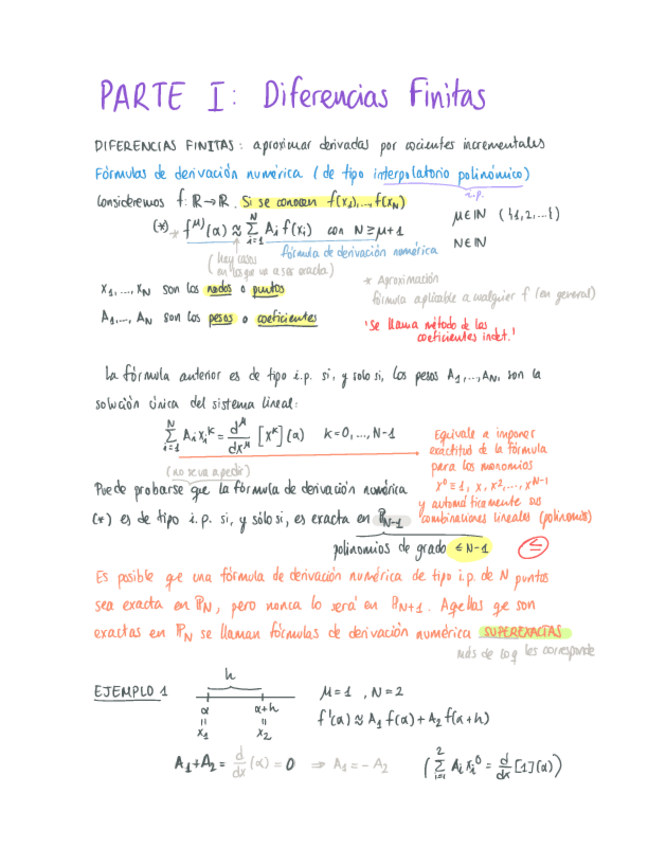 PARTE I: Diferencias Finitas
DIFERENCIAS FINITAS: aproximar derivadas por cocientes incrementales
Fórmulas de derivación numérica (de tipo interpolatorio polinómico)
i.p.
Consideremos f: ℝ→ℝ. Si se conocen f(x₁),...,f(x_N)
(*) * f^(μ)(α) ≈ Σ_{i=1}^{N} A_i f(x_i) con N ≥ μ+1
μ∈ℕ ({1,2,...})
N∈ℕ
fórmula de derivación numérica
(hay casos en los que va a ser exacta)
* Aproximación
fórmula aplicable a cualquier f (en general)
x₁,..., x_N son los nodos o puntos
A₁,..., A_N son los pesos o coeficientes
'Se llama método de los
coeficientes indet.'
La fórmula anterior es de tipo i.p. si, y solo si, los pesos A₁,...,A_N, son la
solución única del sistema lineal:
Σ_{i=1}^{N} A_i x_i^k = d^μ/dx^μ [x^k](α) k=0,..., N-1
Equivale a imponer
exactitud de la fórmula
para los monomios
x⁰≡1, x, x²,..., x^{N-1}
y automáticamente sus
combinaciones lineales (polinomios)
(no se va a pedir)
Puede probarse que la fórmula de derivación numérica
(*) es de tipo i.p. si, y sólo si, es exacta en ℙ_{N-1}
polinomios de grado ∈ N-1
≤
Es posible qe una fórmula de derivación numérica de tipo i.p. de N puntos
sea exacta en ℙ_N, pero nunca lo será en ℙ_{N+1}. Aqellas qe son
exactas en ℙ_N se llaman fórmulas de derivación numérica SUPEREXACTAS
más de lo q les corresponde
EJEMPLO 1
h
α α+h
= =
x₁ x₂
μ=1 , N=2
f'(α) ≈ A₁ f(α) + A₂ f(α+h)
A₁+A₂ = d/dx (α) = 0 ⇒ A₁ = -A₂ (Σ_{i=1}^{2} A_i x_i⁰ = d/dx [1](α))